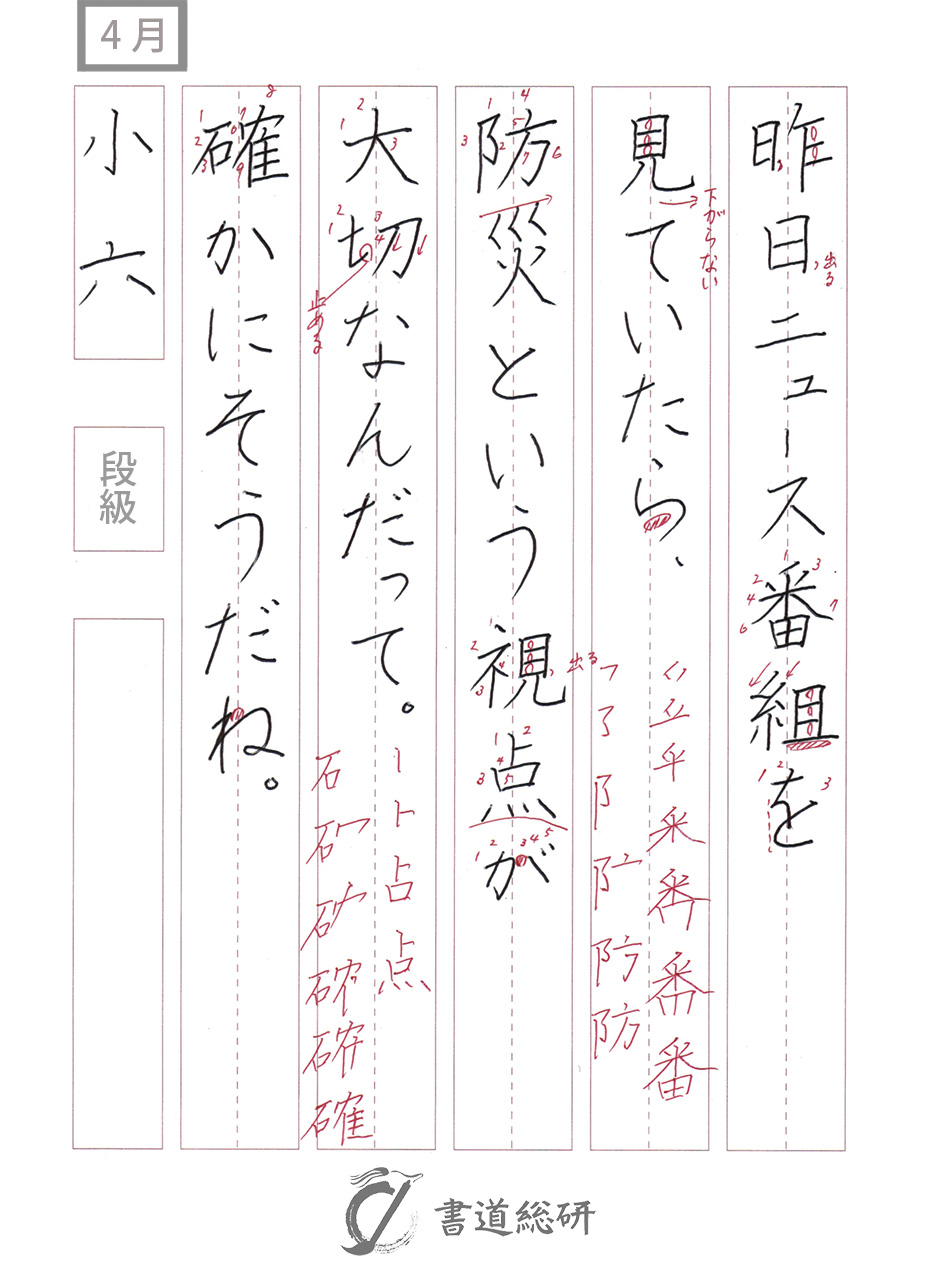 4月
昨日ニュース番組を
見ていたら、
下がらない
出る
防災という視点が
出る
大切なんだって。
止める
確かにそうだね。
番番番
防防
ト占点
石確
小六
段級
書道総研